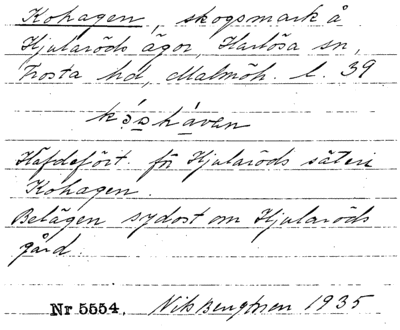 Kohagen, skogsmark å
Hjularöds ägor, Harlösa sn,
Frosta hd, Malmöh. l. 39
Häfdefört. för Hjularöds säteri
Kohagen.
Belägen sydost om Hjularöds
gård.
Nr 5554. Nils Bengtsson 1935